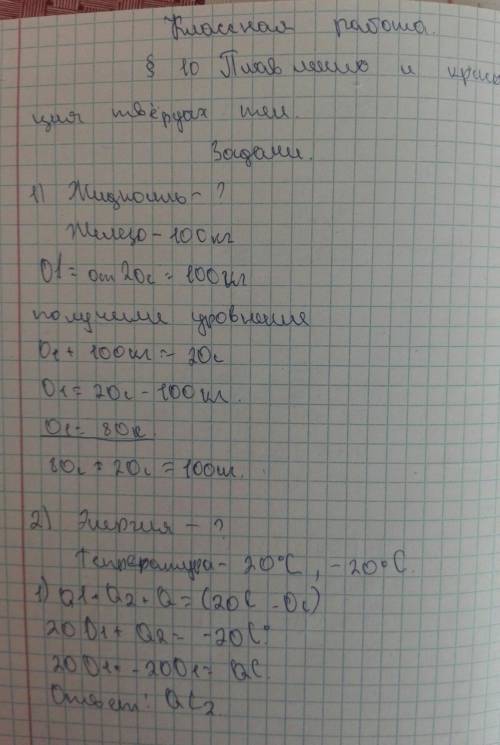 Классная работа.
§ 10 Плавление и крис
ция твёрдах тел.
Задачи.
1) Жидкость - ?
Железо - 100 кг
01 = от 20с = 100кг
получение уровнение
01 + 100кг = 20с
01 = 20с - 100кг.
01 = 80с.
80с + 20с = 100кг.
2) Энергия - ?
Температура - 20°С, -20°С.
1) Q1 + Q2 + Q = (20С - 0с)
20 01 + Q2 = -20С°
20 01 + -20 01 = QС.
Ответ: QС2